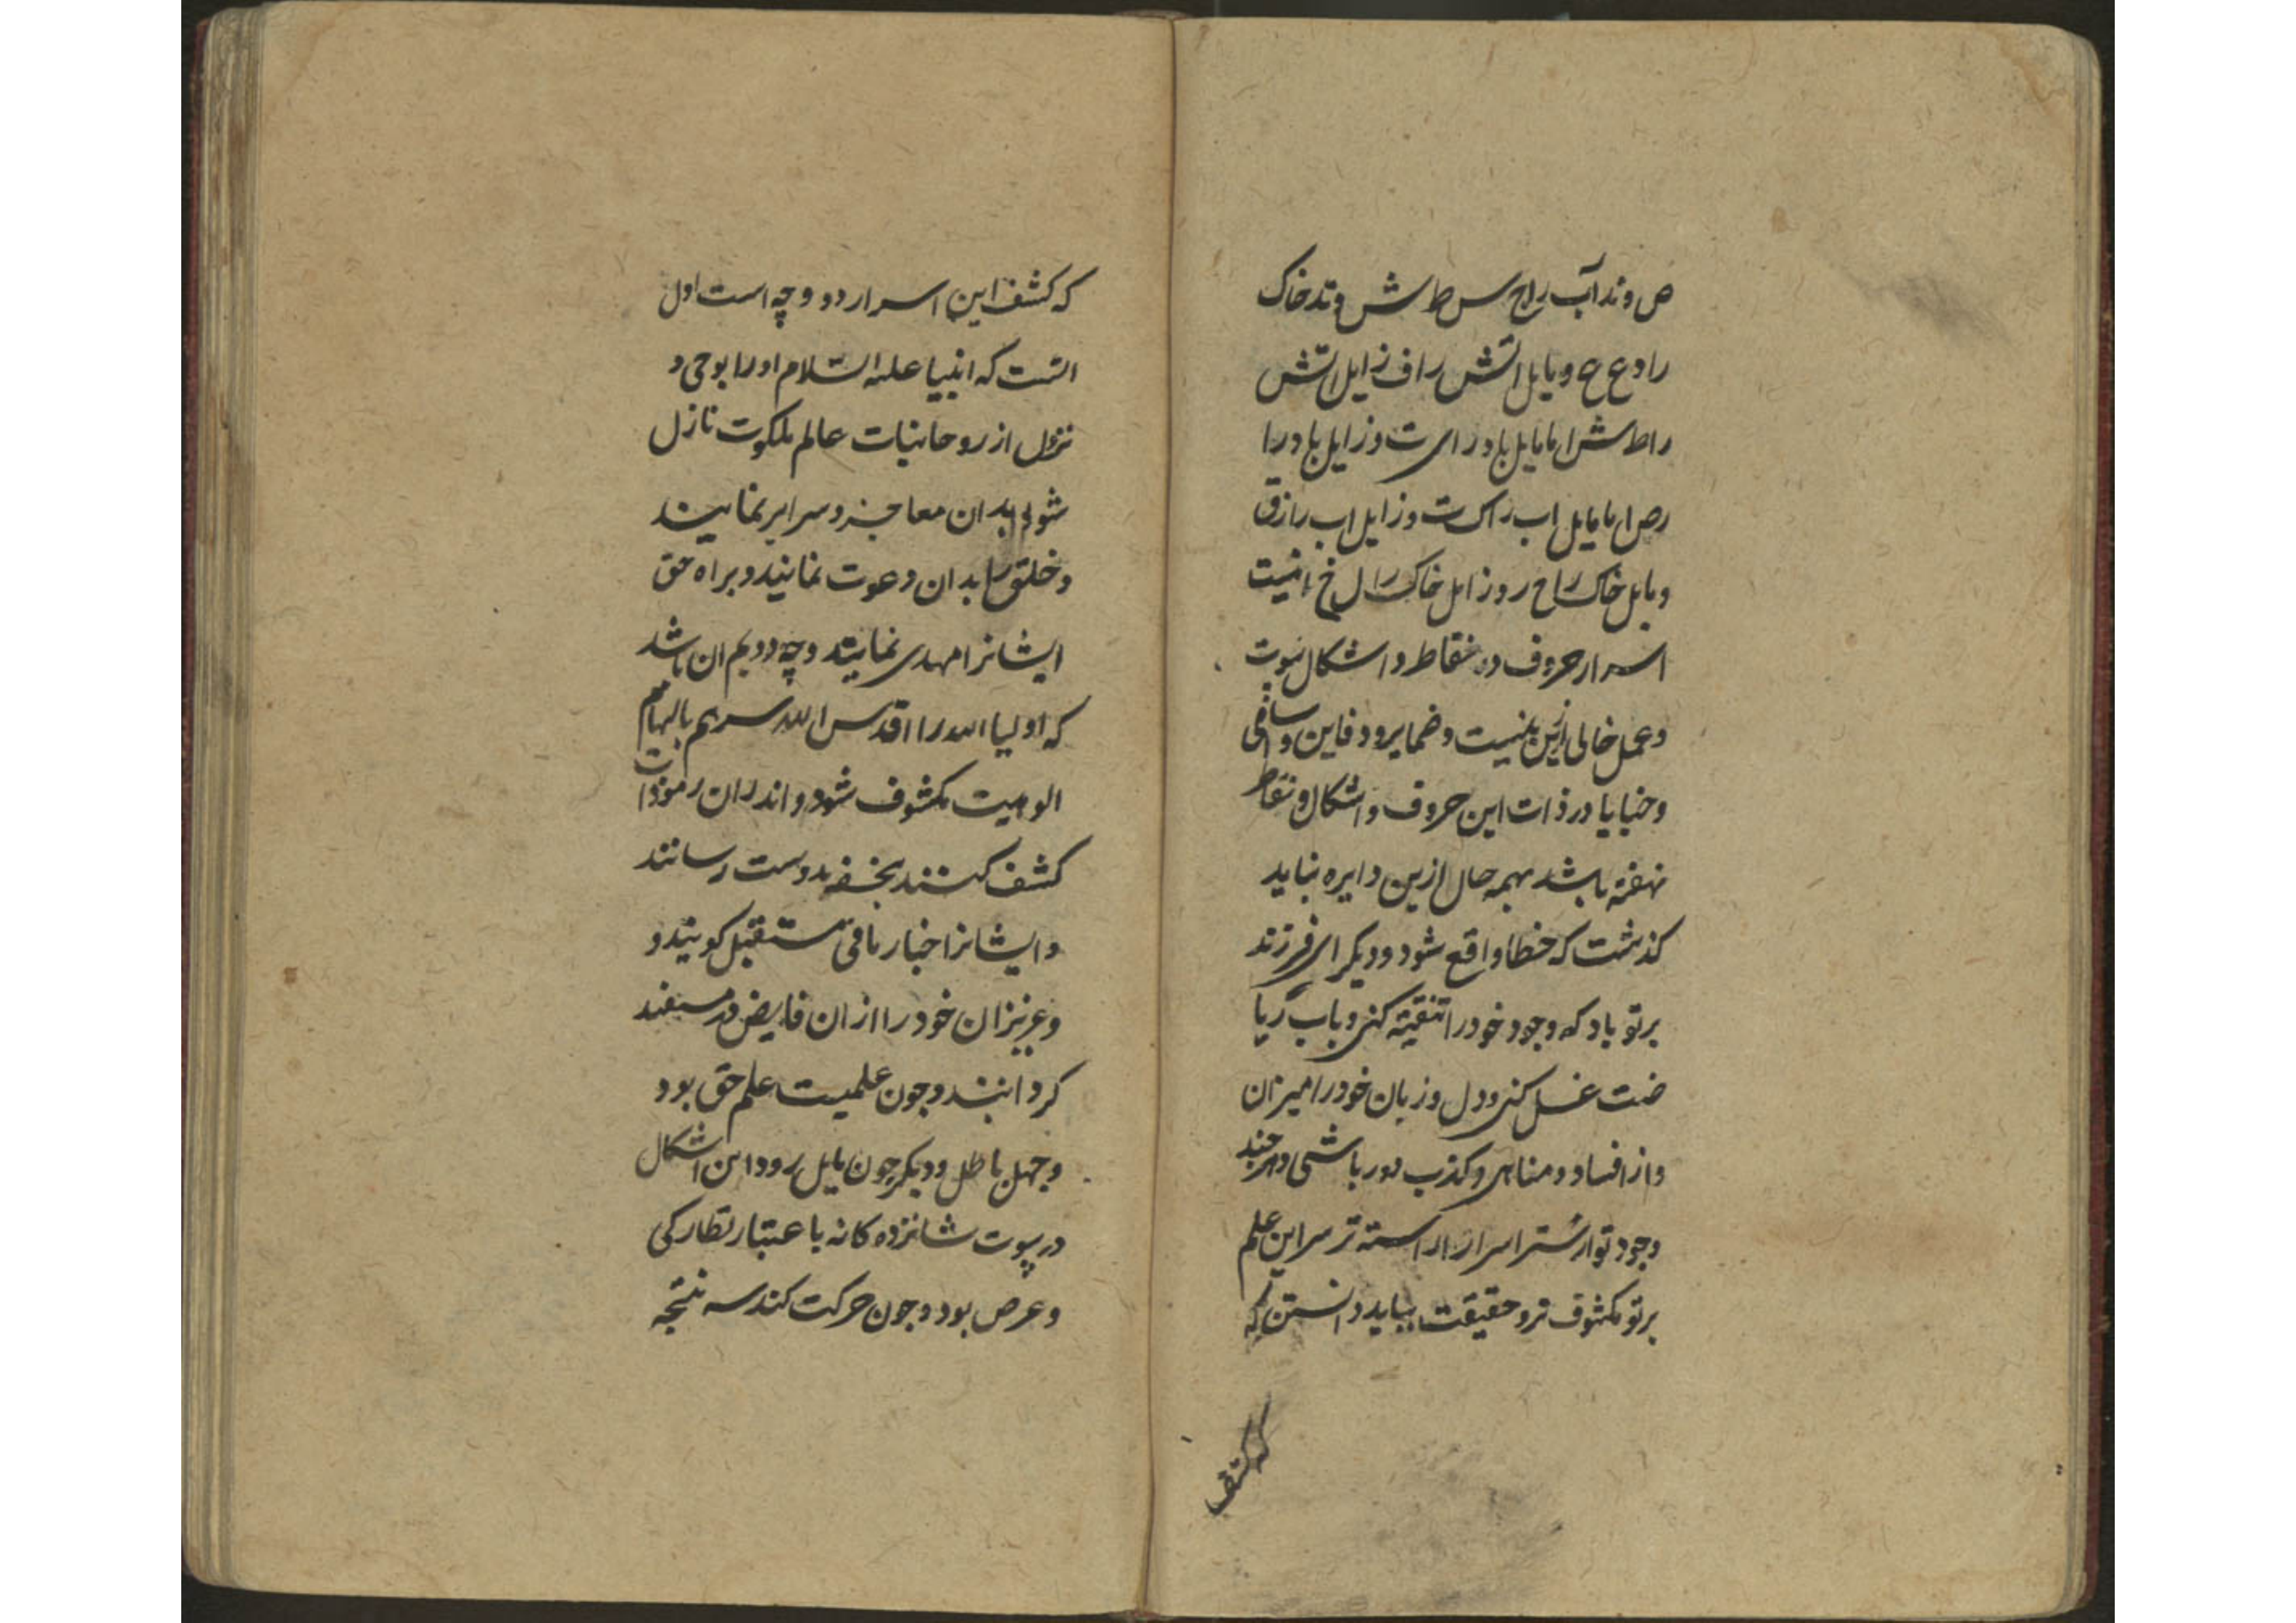 ص وتد آب راح س ط ش وتد خاک
را د ع ح و مایل اتش را ف زایل اتش
را ط ش ا ما مایل باد را ی ت و زایل باد را
ر ص ا ما مایل اب را ک ت و زایل اب را ز ق
و مایل خاک را ح ر و زایل خاک را ل خ انیست
اسرار حروف در نقاط و اشکال بیوت
و عمل خالی ازین نیست و ضمایر و دفاین و سافی
و خبایا در ذات این حروف و اشکال و نقاط
نهفته باشد بهمه حال ازین دایره نباید
کذشت که خطا واقع شود و دیکر ای فرزند
برتو باد که وجود خود را تنقیته کنی و باب ریا
ضت غسل کنی و دل و زبان خود را میزان
و از افساد و مناهی و کذب دور باشی و هرچند
وجود تو از ستر اسرار اراسته تر سر این علم
برتو مکشوف تر و حقیقت بباید دانستن که
که کشف
که کشف این اسرار دو وجه است اول
انست که انبیا علیه السّلام او را بوحی و
نزول از روحانیات عالم ملکوت نازل
شود بدان معاجز و سرایر نمایند
و خلق را بدان دعوت نمایند و براه حق
ایشانرا مهدی نمایند وجه دویم ان باشد
که اولیا الله را قدس الله سرهم بالهام
الوهیت مکشوف شود و اندران رموزات
کشف کنند بخفیه بدوست رسانند
و ایشانرا اخبار مافی مستقبل کویند و
و عزیزان خود را از ان فایض و مستفید
کردانند و چون علمیست علم حق بود
و جهل باطل و دیکر چون مایل رود این اشکال
در بیوت شانزده کانه باعتبار نظارکی
و عرض بود و چون حرکت کند سه نتیجه